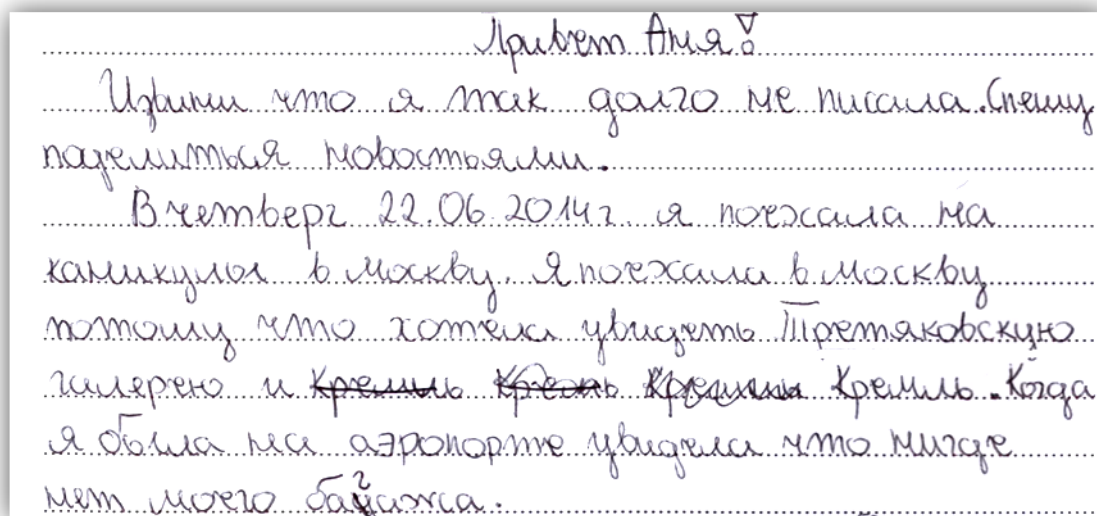 Привет Аня!
Извини что я так долго не писала. Спешу
поделиться новостьями.
В четверг 22.06.2014г. я поехала на
каникулы в Москву. Я поехала в Москву
потому что хотела увидеть Третяковскую
галерею и Кремль. Когда
я была на аэропорте увидела что нигде
нет моего багажа.